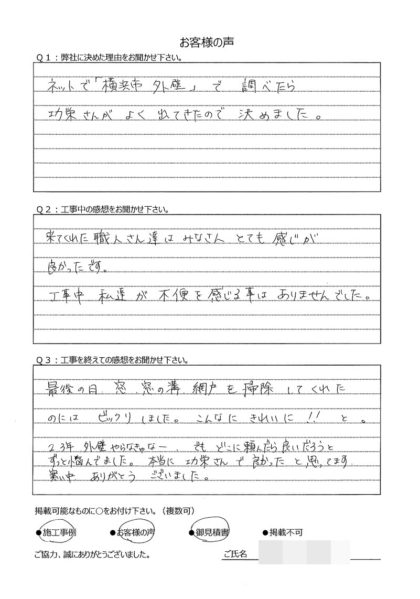 お客様の声
Q1：弊社に決めた理由をお聞かせ下さい。
ネットで「横浜市 外壁」で 調べたら
功栄さんが よく 出てきたので 決めました。
Q2：工事中の感想をお聞かせ下さい。
来てくれた 職人さん達は みなさん とても 感じが
良かったです。
工事中 私達が 不便を感じる事は ありませんでした。
Q3：工事を終えての感想をお聞かせ下さい。
最後の日、窓、窓の溝、網戸を掃除してくれた
のには ビックリしました。こんなに きれいに!! と。
2.3年 外壁やらなきゃなー、でも どこに頼んだら良いだろうと
ずっと悩んでました。本当に 功栄さんで 良かったと 思ってます
寒い中 ありがとう ございました。
掲載可能なものに○をお付け下さい。（複数可）
●施工事例 ●お客様の声 ●御見積書 ●掲載不可
ご協力、誠にありがとうございました。 ご氏名